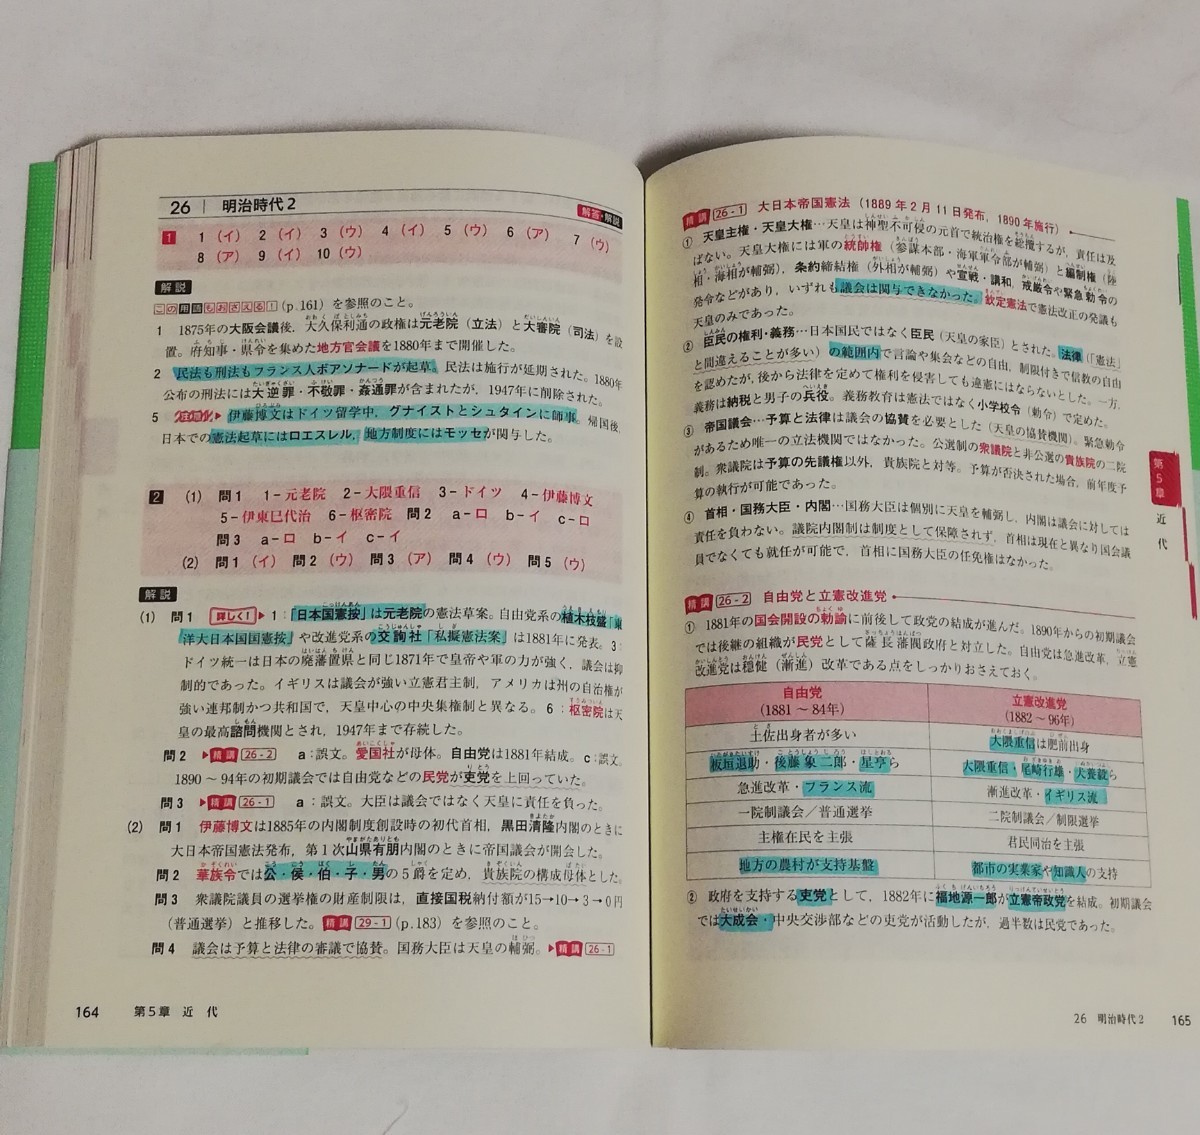 26 明治時代2
解答・解説
1 1(イ) 2(イ) 3(ウ) 4(イ) 5(ウ) 6(ア) 7(ウ)
8(ア) 9(イ) 10(ウ)
解説
この用語もおさえる! (p.161)を参照のこと。
1 1875年の大阪会議後,大久保利通の政権は元老院(立法)と大審院(司法)を設
置。府知事・県令を集めた地方官会議を1880年まで開催した。
2 民法も刑法もフランス人ボアソナードが起草。民法は施行が延期された。1880年
公布の刑法には大逆罪・不敬罪・姦通罪が含まれたが,1947年に削除された。
5 注意! 伊藤博文はドイツ留学中,グナイストとシュタインに師事。帰国後,
日本での憲法起草にはロエスレル,地方制度にはモッセが関与した。
2 (1) 問1 1-元老院 2-大隈重信 3-ドイツ 4-伊藤博文
5-伊東巳代治 6-枢密院 問2 a-ロ b-イ c-ロ
問3 a-ロ b-イ c-イ
(2) 問1(イ) 問2(ウ) 問3(ア) 問4(ウ) 問5(ウ)
解説
(1) 問1 詳しく! 1:「日本国憲按」は元老院の憲法草案。自由党系の植木枝盛「東
洋大日本国国憲按」や改進党系の交詢社「私擬憲法案」は1881年に発表。3:
ドイツ統一は日本の廃藩置県と同じ1871年で皇帝や軍の力が強く,議会は抑
制的であった。イギリスは議会が強い立憲君主制,アメリカは州の自治権が
強い連邦制かつ共和国で,天皇中心の中央集権制と異なる。6:枢密院は天
皇の最高諮問機関とされ,1947年まで存続した。
問2 精講 26-2 a:誤文。愛国社が母体。自由党は1881年結成。c:誤文。
1890~94年の初期議会では自由党などの民党が吏党を上回っていた。
問3 精講 26-1 a:誤文。大臣は議会ではなく天皇に責任を負った。
(2) 問1 伊藤博文は1885年の内閣制度創設時の初代首相,黒田清隆内閣のときに
大日本帝国憲法発布,第1次山県有朋内閣のときに帝国議会が開会した。
問2 華族令では公・侯・伯・子・男の5爵を定め,貴族院の構成母体とした。
問3 衆議院議員の選挙権の財産制限は,直接国税納付額が15→10→3→0円
(普通選挙)と推移した。精講 29-1 (p.183)を参照のこと。
問4 議会は予算と法律の審議で協賛。国務大臣は天皇の輔弼。精講 26-1
164 第5章 近代
精講 26-1 大日本帝国憲法(1889年2月11日発布,1890年施行)
① 天皇主権・天皇大権…天皇は神聖不可侵の元首で統治権を総攬するが,責任は及
ばない。天皇大権には軍の統帥権(参謀本部・海軍軍令部が輔弼)と編制権(陸
相・海相が輔弼),条約締結権(外相が輔弼)や宣戦・講和,戒厳令や緊急勅令の
発令などがあり,いずれも議会は関与できなかった。欽定憲法で憲法改正の発議も
天皇のみであった。
② 臣民の権利・義務…日本国民ではなく臣民(天皇の家臣)とされた。法律(「憲法」
と間違えることが多い)の範囲内で言論や集会などの自由,制限付きで信教の自由
を認めたが,後から法律を定めて権利を侵害しても違憲にはならないとした。一方,
義務は納税と男子の兵役。義務教育は憲法ではなく小学校令(勅令)で定めた。
③ 帝国議会…予算と法律は議会の協賛を必要とした(天皇の協賛機関)。緊急勅令
があるため唯一の立法機関ではなかった。公選制の衆議院と非公選の貴族院の二院
制。衆議院は予算の先議権以外,貴族院と対等。予算が否決された場合,前年度予
算の執行が可能であった。
④ 首相・国務大臣・内閣…国務大臣は個別に天皇を輔弼し,内閣は議会に対しては
責任を負わない。議院内閣制は制度として保障されず,首相は現在と異なり国会議
員でなくても就任が可能で,首相に国務大臣の任免権はなかった。
精講 26-2 自由党と立憲改進党
① 1881年の国会開設の勅諭に前後して政党の結成が進んだ。1890年からの初期議会
では後継の組織が民党として薩長藩閥政府と対立した。自由党は急進改革,立憲
改進党は穏健(漸進)改革である点をしっかりおさえておく。
自由党 立憲改進党
(1881~84年) (1882~96年)
土佐出身者が多い 大隈重信は肥前出身
板垣退助・後藤象二郎・星亨ら 大隈重信・尾崎行雄・犬養毅ら
急進改革・フランス流 漸進改革・イギリス流
一院制議会/普通選挙 二院制議会/制限選挙
主権在民を主張 君民同治を主張
地方の農村が支持基盤 都市の実業家や知識人の支持
② 政府を支持する吏党として,1882年に福地源一郎が立憲帝政党を結成。初期議会
では大成会・中央交渉部などの吏党が活動したが,過半数は民党であった。
第5章
近代
26 明治時代2 165